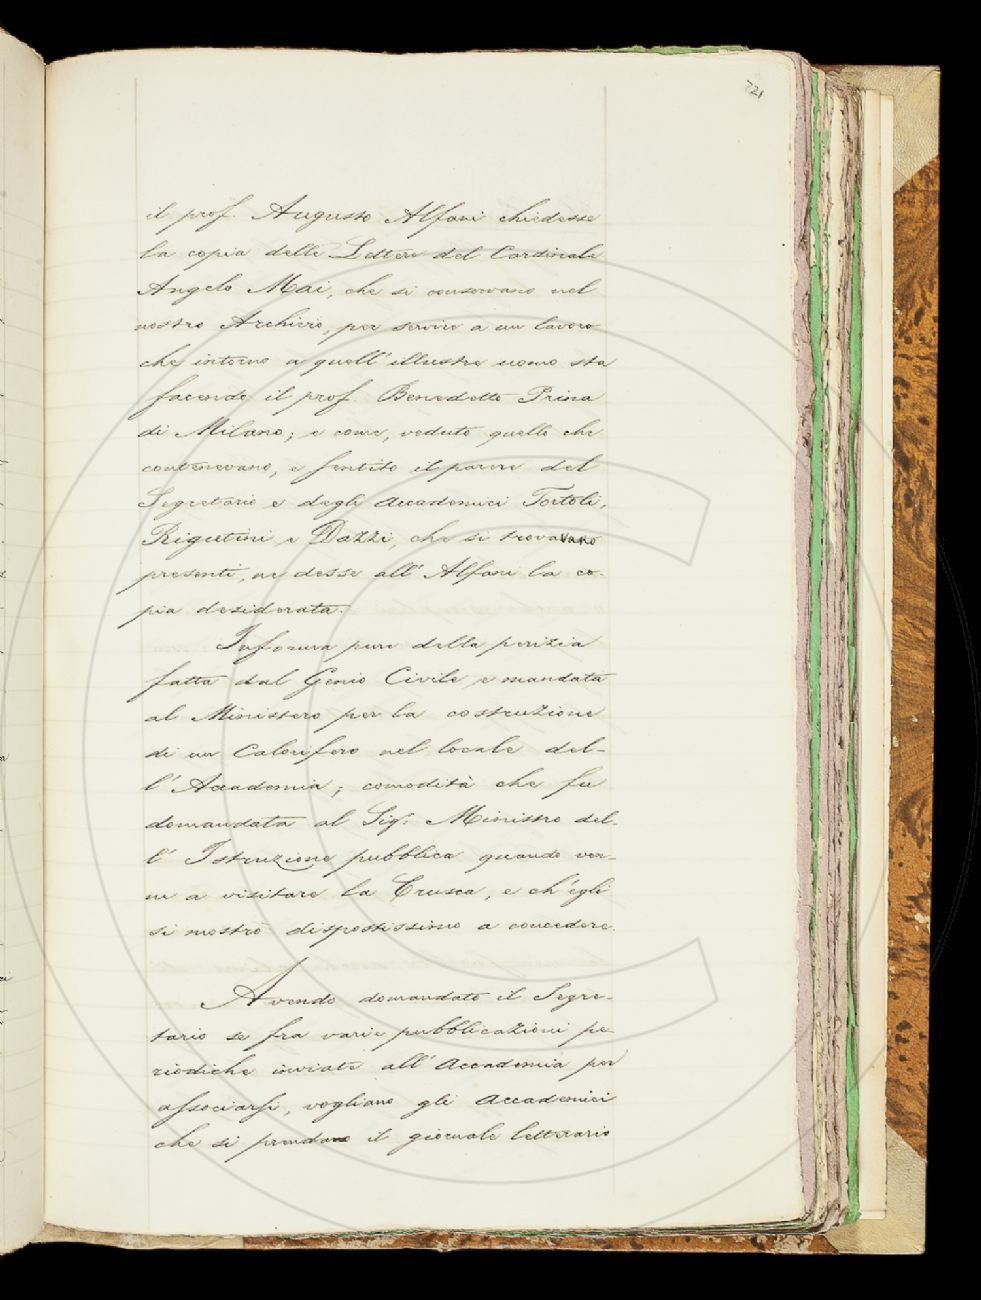 721
il prof. Augusto Alfani chiedesse
la copia delle Lettere del Cardinale
Angelo Mai, che si conservano nel
nostro Archivio, per servire a un lavoro
che intorno a quell'illustre uomo sta
facendo il prof. Benedetto Prina
di Milano; e come, veduto quello che
contenevano, e sentito il parere del
Segretario e degli Accademici Tortoli,
Rigutini e Dazzi, che si trovavano
presenti, ne desse all'Alfani la co-
pia desiderata.
Informa pure della perizia
fatta dal Genio Civile e mandata
al Ministero per la costruzione
di un Calorifero nel locale del-
l'Accademia; comodità che fu
domandata al Sig. Ministro del-
l'Istruzione pubblica quando ven-
ne a visitare la Crusca, e ch'egli
si mostrò dispostissimo a concedere.
Avendo domandato il Segre-
tario se fra varie pubblicazioni pe-
riodiche inviate all'Accademia per
associarsi, vogliano gli Accademici
che si prenda il giornale letterario